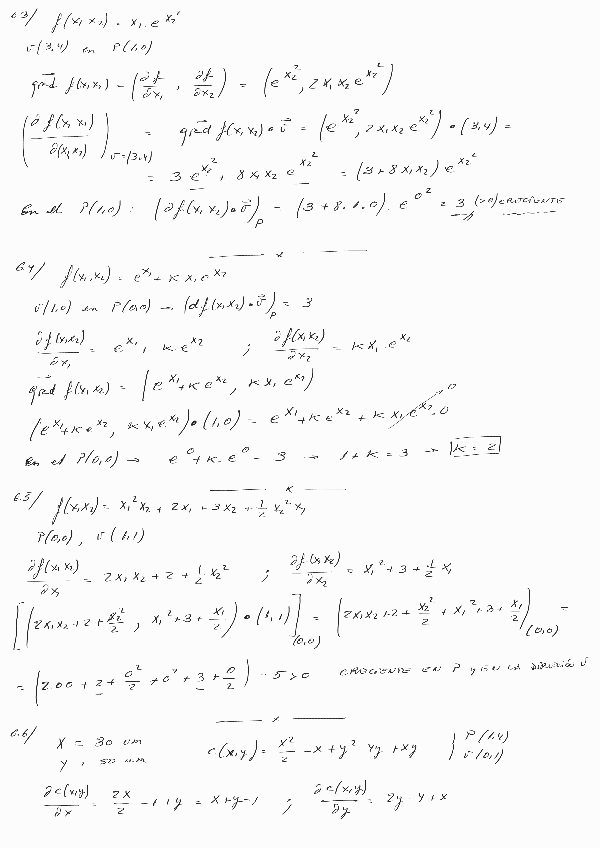 6.3/ f(x₁x₂) = x₁·e^{x₂²}
v(3,4) en P(1,0)
grad f(x₁x₂) = (∂f/∂x₁ , ∂f/∂x₂) = (e^{x₂²}, 2x₁x₂e^{x₂²})
(∂f(x₁x₂)/∂(x₁x₂))_{v=(3,4)} = grad f(x₁x₂)•v⃗ = (e^{x₂²}, 2x₁x₂e^{x₂²})•(3,4) =
= 3e^{x₂²}, 8x₁x₂e^{x₂²} = (3+8x₁x₂)e^{x₂²}
En el P(1,0): (∂f(x₁x₂)•v⃗)_P = (3+8.1.0).e^{0²} = 3 (>0) CRECIENTE
x
6.4/ f(x₁x₂) = e^{x₁}+K x₁e^{x₂}
v(1,0) en P(0,0) → (df(x₁x₂)•v⃗)_P = 3
∂f(x₁x₂)/∂x₁ = e^{x₁}, K·e^{x₂} ; ∂f(x₁x₂)/∂x₂ = Kx₁·e^{x₂}
grad f(x₁x₂) = (e^{x₁}+Ke^{x₂}, Kx₁e^{x₂})
(e^{x₁}+Ke^{x₂}, Kx₁e^{x₂})•(1,0) = e^{x₁}+Ke^{x₂}+Kx₁e^{x₂}·0 0
En el P(0,0) → e⁰+K·e⁰ = 3 → 1+K=3 → K=2
x
6.5/ f(x₁x₂) = x₁²x₂+2x₁+3x₂+½x₂²x₁
P(0,0), v(1,1)
∂f(x₁x₂)/∂x₁ = 2x₁x₂+2+½x₂² ; ∂f(x₁x₂)/∂x₂ = x₁²+3+½x₁
[(2x₁x₂+2+x₂²/2 , x₁²+3+x₁/2)•(1,1)]_{(0,0)} = (2x₁x₂+2+x₂²/2+x₁²+3+x₁/2)_{(0,0)} =
= (2.00+2+0²/2+0²+3+0/2) = 5>0 CRECIENTE EN P Y EN LA DIRECCIÓN v⃗
x
6.6/ x = 80 um c(x,y) = x²/2 -x+y² 4y+xy | P(1,4)
y, 50 um v(0,1)
∂c(x,y)/∂x = 2x/2 -1+y = x+y-1 ; ∂c(x,y)/∂y = 2y 4+x